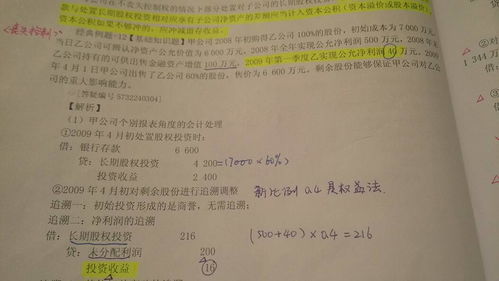 款与处置长期股权投资相对应享有子公司净资产的差额应当计入资本公积(资本溢价或股本溢价),
资本公积如果不够冲的,应冲减留存收益。
经典例题-12【基础知识题】甲公司2008年初购得乙公司100%的股份,初始成本为7 000万元,
当日乙公司可辨认净资产公允价值为6 000万元,2008年全年实现公允净利润500万元,2008年末
乙公司持有的可供出售金融资产增值100万元,2009年第一季度乙实现公允净利润40万元,2009
年4月1日甲公司出售了乙公司60%的股份,售价为6 600万元,剩余股份能够保证甲公司对乙公
司的重大影响能力。
[答疑编号5732240304]
【解析】
(1)甲公司个别报表角度的会计处理
①2009年4月初处置股权投资时:
借:银行存款 6 600
贷:长期股权投资 4 200=(7000×60%)
投资收益 2 400
②2009年4月初对剩余股份进行追溯调整 新比例0.4是权益法.
追溯一:初始投资形成的是商誉,无需追溯;
追溯二:净利润的追溯
借:长期股权投资 216 (500+40)×0.4=216
贷:未分配利润 200
投资收益 16
1 344万